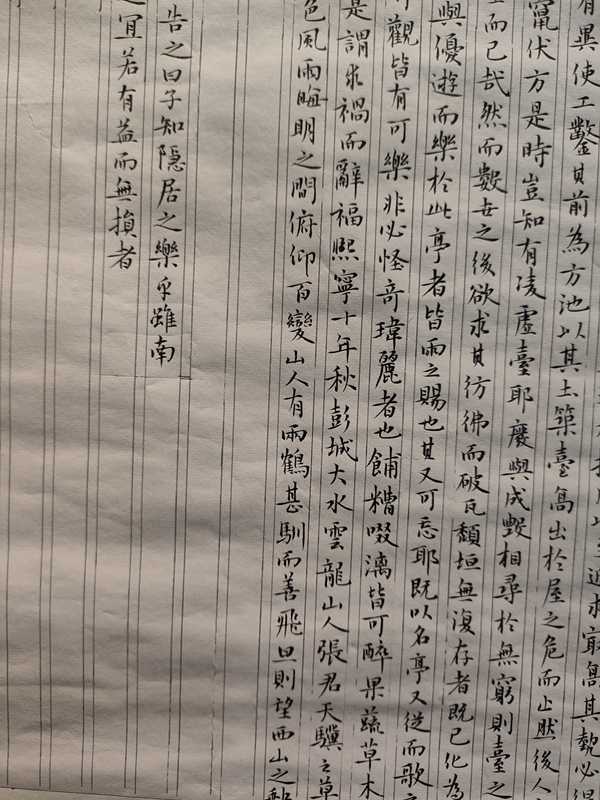 求最高其勢必得
有異使工鑿其前為方池以其土築臺高出於屋之危而止然後人
竄伏方是時豈知有凌虛臺耶廢興成毀相尋於無窮則臺之
而已哉然而數世之後欲求其彷彿而破瓦頹垣無復存者既已化為
與優遊而樂於此亭者皆雨之賜也其又可忘耶既以名亭又從而歌之
可觀皆有可樂非必怪奇瑋麗者也餔糟啜漓皆可醉果蔬草木
是謂求禍而辭福熙寧十年秋彭城大水雲龍山人張君天驥之草
色風雨晦明之間俯仰百變山人有兩鶴甚馴而善飛旦則望西山之缺
告之曰子知隱居之樂乎雖南
宜若有益而無損者